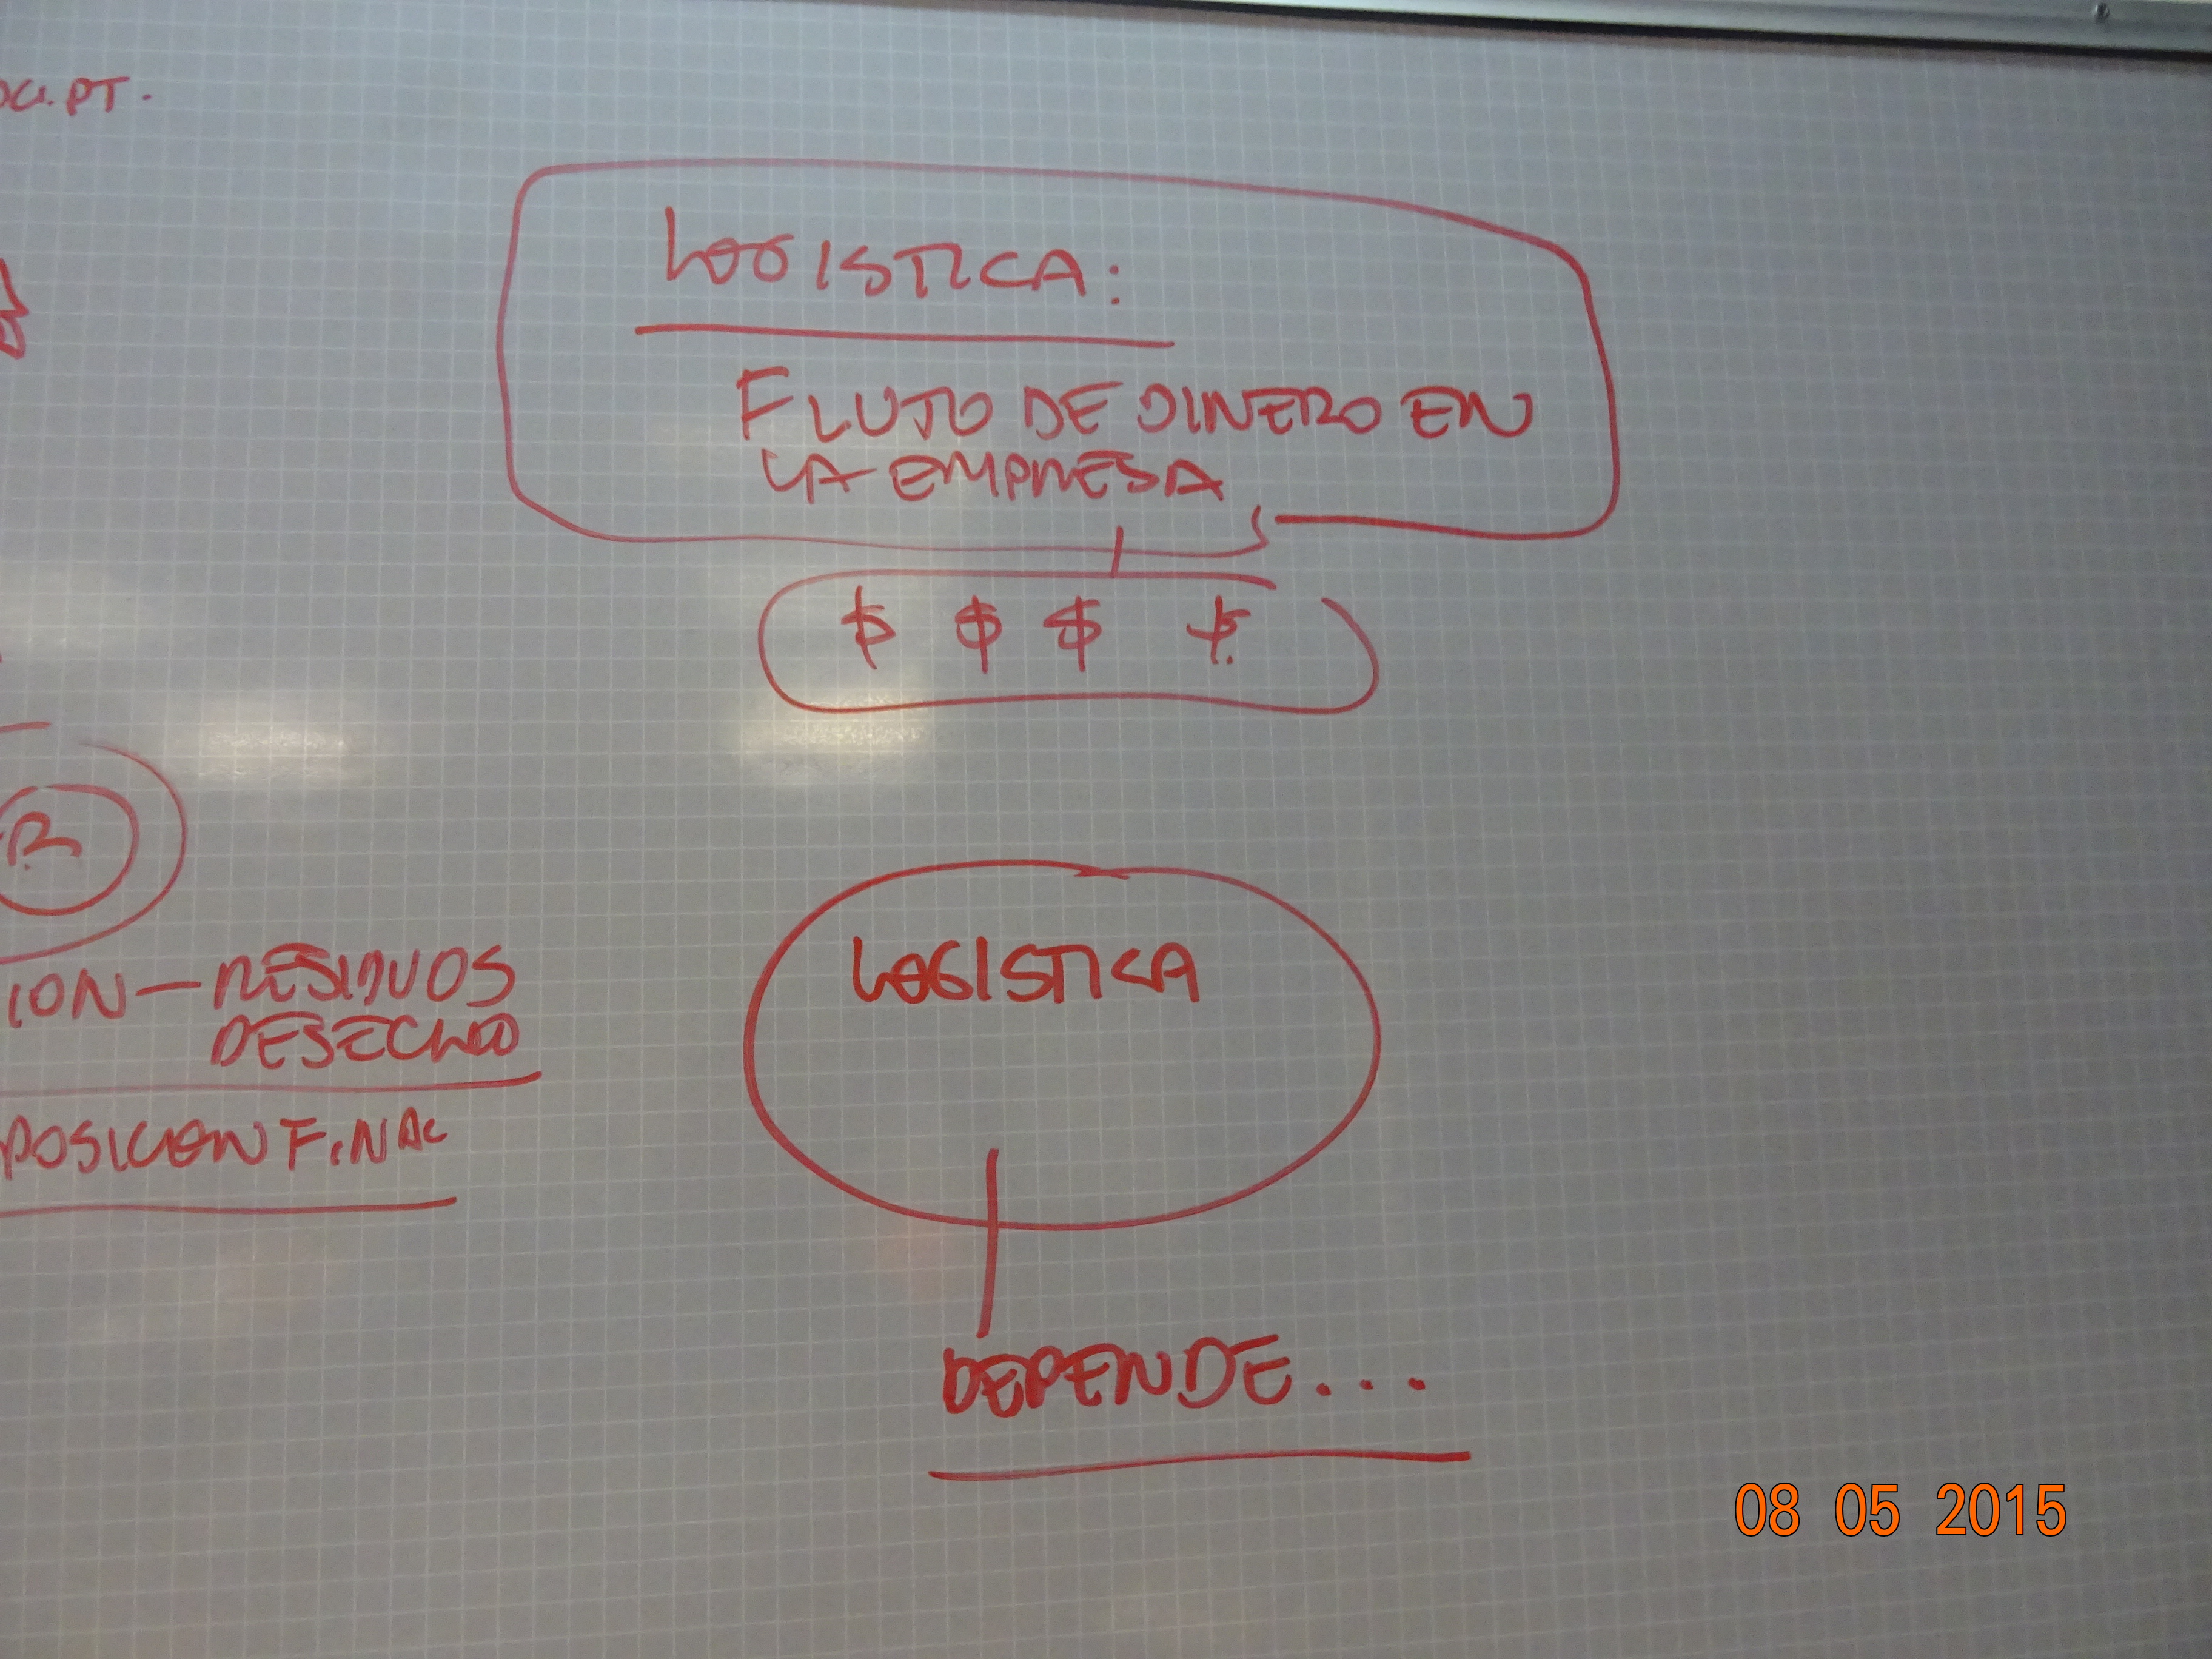 PT.
LOGISTICA:
FLUJO DE DINERO EN
LA EMPRESA
$ $ $ $
R
ION — RESIDUOS
DESECHO
POSICION FINAL
LOGISTICA
DEPENDE...
08 05 2015